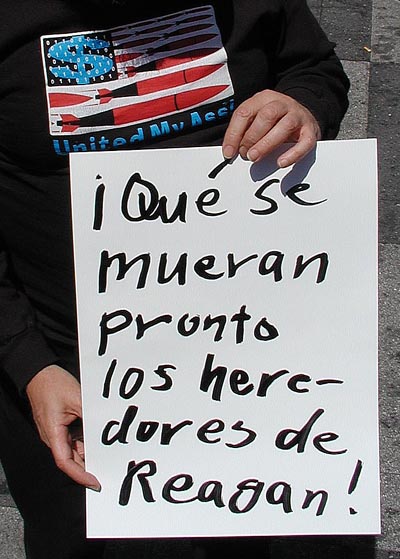 United My Ass
¡Qué se
mueran
pronto
los here-
dores de
Reagan!